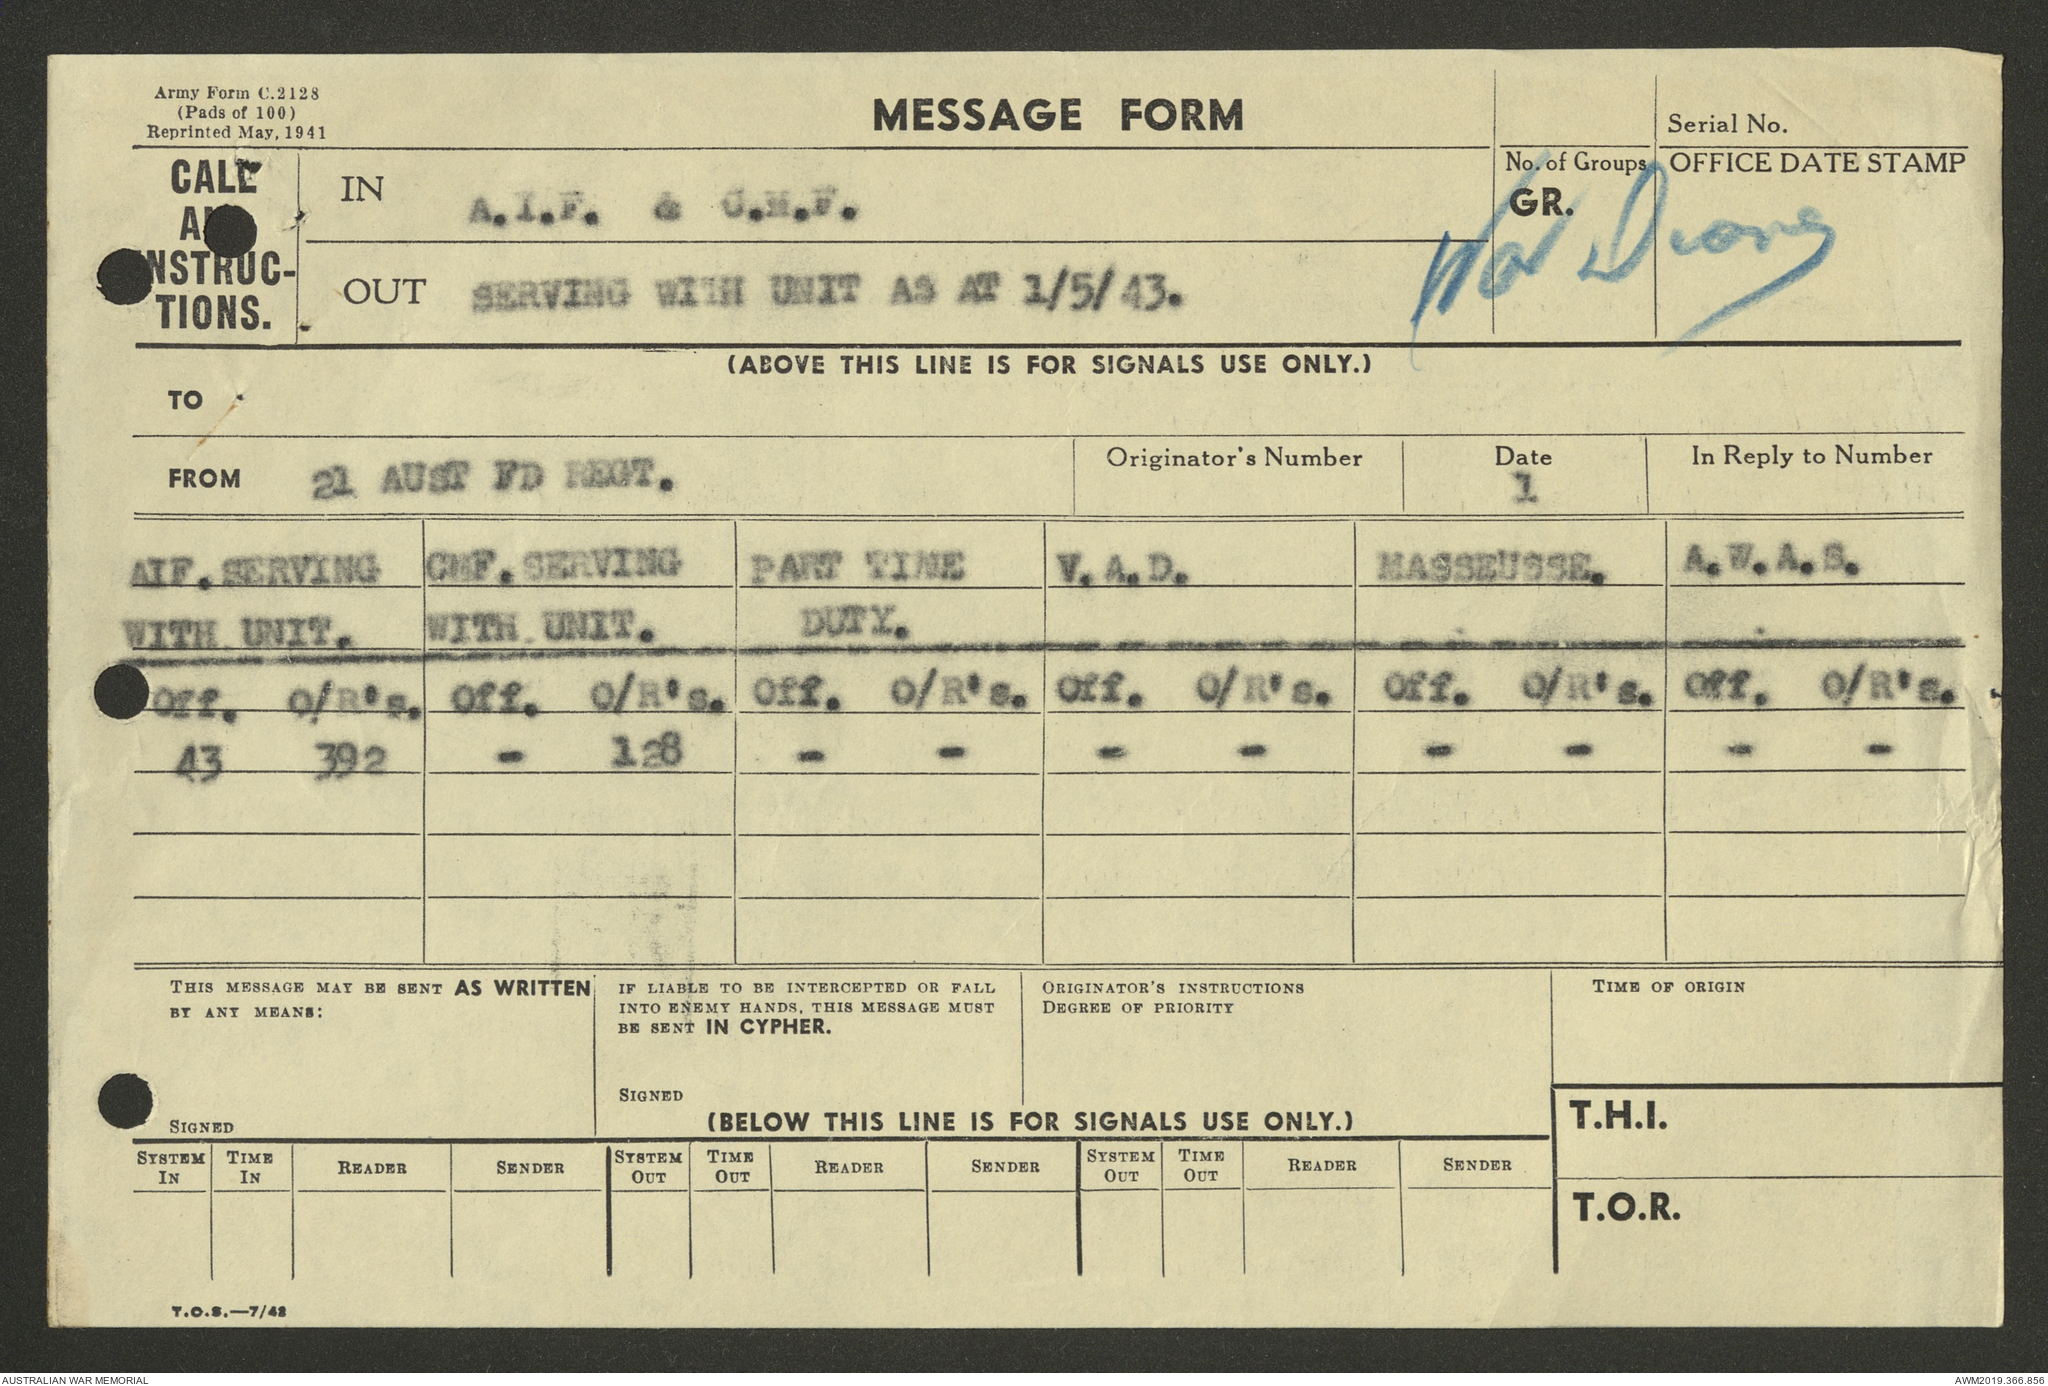 Army Form C.2128
(Pads of 100)
Reprinted May, 1941
MESSAGE FORM
Serial No.
CALL
AND
INSTRUC-
TIONS.
IN A.I.F. & C.M.F.
No. of Groups
GR.
OFFICE DATE STAMP
War Diary
OUT SERVING WITH UNIT AS AT 1/5/43.
(ABOVE THIS LINE IS FOR SIGNALS USE ONLY.)
TO
FROM 21 AUST FD REGT.
Originator's Number
Date
1
In Reply to Number
AIF. SERVING CMF. SERVING PART TIME V.A.D. MASSEUSSE. A.W.A.S.
WITH UNIT. WITH UNIT. DUTY.
Off. O/R's. Off. O/R's. Off. O/R's. Off. O/R's. Off. O/R's. Off. O/R's.
43 392 - 128 - - - - - - - -
THIS MESSAGE MAY BE SENT AS WRITTEN
BY ANY MEANS:
SIGNED
IF LIABLE TO BE INTERCEPTED OR FALL
INTO ENEMY HANDS, THIS MESSAGE MUST
BE SENT IN CYPHER.
SIGNED
ORIGINATOR'S INSTRUCTIONS
DEGREE OF PRIORITY
TIME OF ORIGIN
(BELOW THIS LINE IS FOR SIGNALS USE ONLY.)
T.H.I.
SYSTEM IN TIME IN READER SENDER SYSTEM OUT TIME OUT READER SENDER SYSTEM OUT TIME OUT READER SENDER
T.O.R.
T.O.S.—7/42
AUSTRALIAN WAR MEMORIAL
AWM2019.366.856